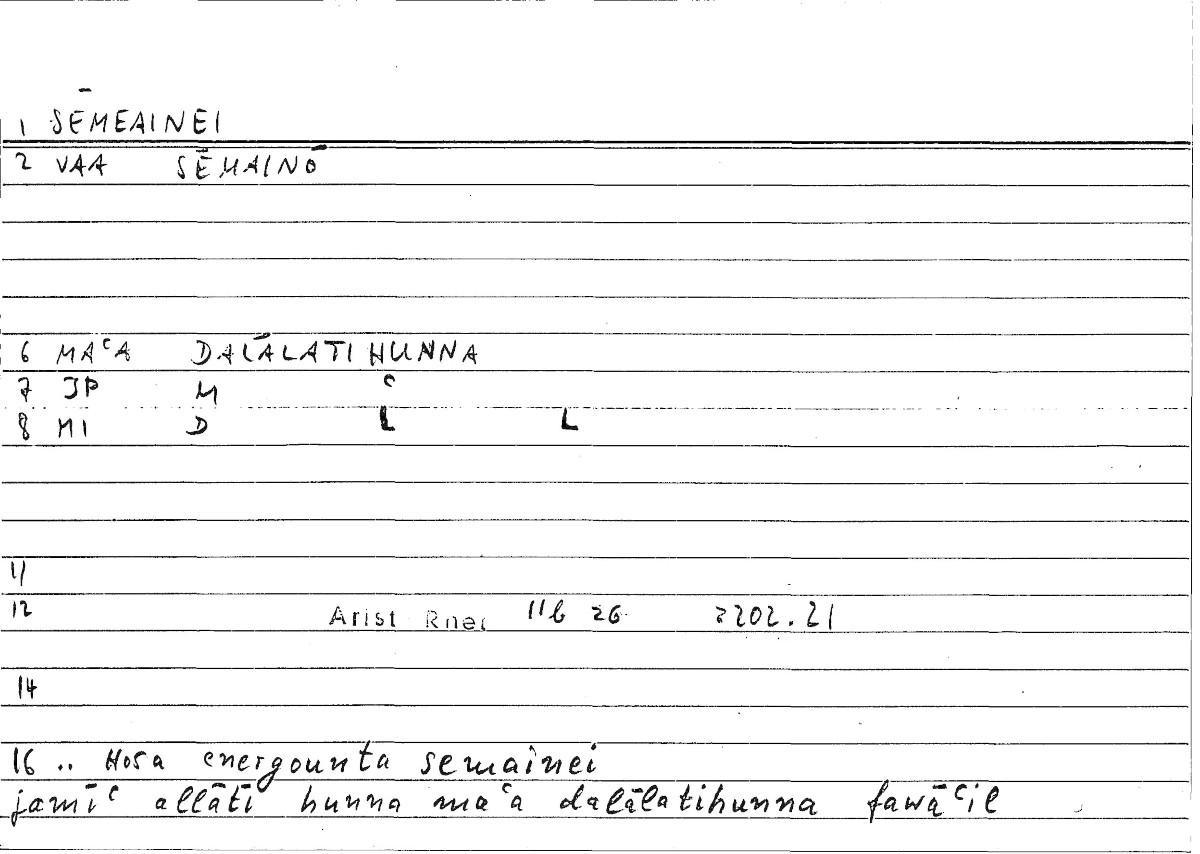 1 SĒMEAINEI
2 VAA SĒMAINŌ
6 MAʿA DALĀLATIHUNNA
7 JP M ʿ
8 MI D L L
11
12 Arist Rhet 11b 26 2202.21
14
16 .. Hosa energounta semainei
jamīʿ allāti hunna maʿa dalālatihunna fawāʿil